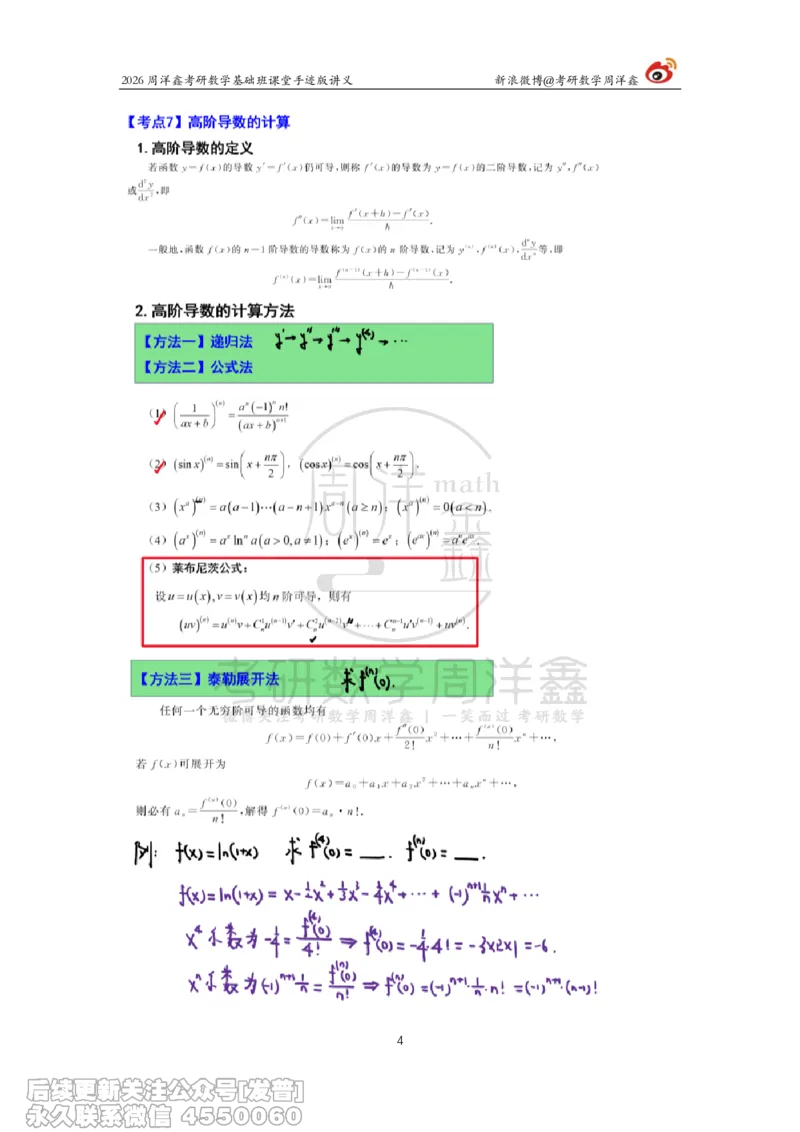 2026 周洋鑫考研数学基础班课堂手迹版讲义 新浪微博@考研数学周洋鑫
【考点7】高阶导数的计算
1. 高阶导数的定义
若函数 y=f(x)的导数 y′=f′(x)仍可导,则称 f′(x)的导数为 y=f(x)的二阶导数,记为 y″,f″(x)
或 d²y/dx²,即
f″(x)=lim_{h→0} (f′(x+h)−f′(x))/h.
一般地,函数 f(x)的 n−1 阶导数的导数称为 f(x)的 n 阶导数,记为 y⁽ⁿ⁾,f⁽ⁿ⁾(x),dⁿy/dxⁿ等,即
f⁽ⁿ⁾(x)=lim_{h→0} (f⁽ⁿ⁻¹⁾(x+h)−f⁽ⁿ⁻¹⁾(x))/h.
2. 高阶导数的计算方法
【方法一】递归法 y′→y″→y‴→y⁽⁴⁾→⋯
【方法二】公式法
(1) (1/(ax+b))⁽ⁿ⁾ = aⁿ(−1)ⁿn!/(ax+b)ⁿ⁺¹
(2) (sin x)⁽ⁿ⁾=sin(x+nπ/2), (cos x)⁽ⁿ⁾=cos(x+nπ/2).
(3) (xᵃ)⁽ⁿ⁾=a(a−1)⋯(a−n+1)xᵃ⁻ⁿ(a≥n); (xᵃ)⁽ⁿ⁾=0(a<n).
(4) (aˣ)⁽ⁿ⁾=aˣlnⁿa(a>0,a≠1); (eˣ)⁽ⁿ⁾=eˣ; (eᵃˣ)⁽ⁿ⁾=aⁿeᵃˣ.
(5) 莱布尼茨公式:
设u=u(x),v=v(x)均n阶可导,则有
(uv)⁽ⁿ⁾=u⁽ⁿ⁾v+C¹ₙu⁽ⁿ⁻¹⁾v′+C²ₙu⁽ⁿ⁻²⁾v″+⋯+Cₙⁿ⁻¹u′v⁽ⁿ⁻¹⁾+uv⁽ⁿ⁾.
【方法三】泰勒展开法 求f⁽ⁿ⁾(0).
任何一个无穷阶可导的函数均有
f(x)=f(0)+f′(0)x+f″(0)/2! x²+⋯+f⁽ⁿ⁾(0)/n! xⁿ+⋯,
若 f(x)可展开为
f(x)=a₀+a₁x+a₂x²+⋯+aₙxⁿ+⋯,
则必有 aₙ=f⁽ⁿ⁾(0)/n!,解得 f⁽ⁿ⁾(0)=aₙ·n!.
例: f(x)=ln(1+x) 求 f⁽⁴⁾(0)=___. f⁽ⁿ⁾(0)=___.
f(x)=ln(1+x)=x−½x²+⅓x³−¼x⁴+⋯+(−1)ⁿ⁺¹ 1/n xⁿ+⋯
x⁴系数为−¼=f⁽⁴⁾(0)/4! ⇒ f⁽⁴⁾(0)=−¼·4!=−3×2×1=−6.
xⁿ系数为(−1)ⁿ⁺¹ 1/n=f⁽ⁿ⁾(0)/n! ⇒ f⁽ⁿ⁾(0)=(−1)ⁿ⁺¹·1/n·n!=(−1)ⁿ⁺¹·(n−1)!
周洋鑫math
考研数学周洋鑫
微博关注考研数学周洋鑫 | 一笑而过 考研数学
4
后续更新关注公众号[发普]
永久联系微信 4550060